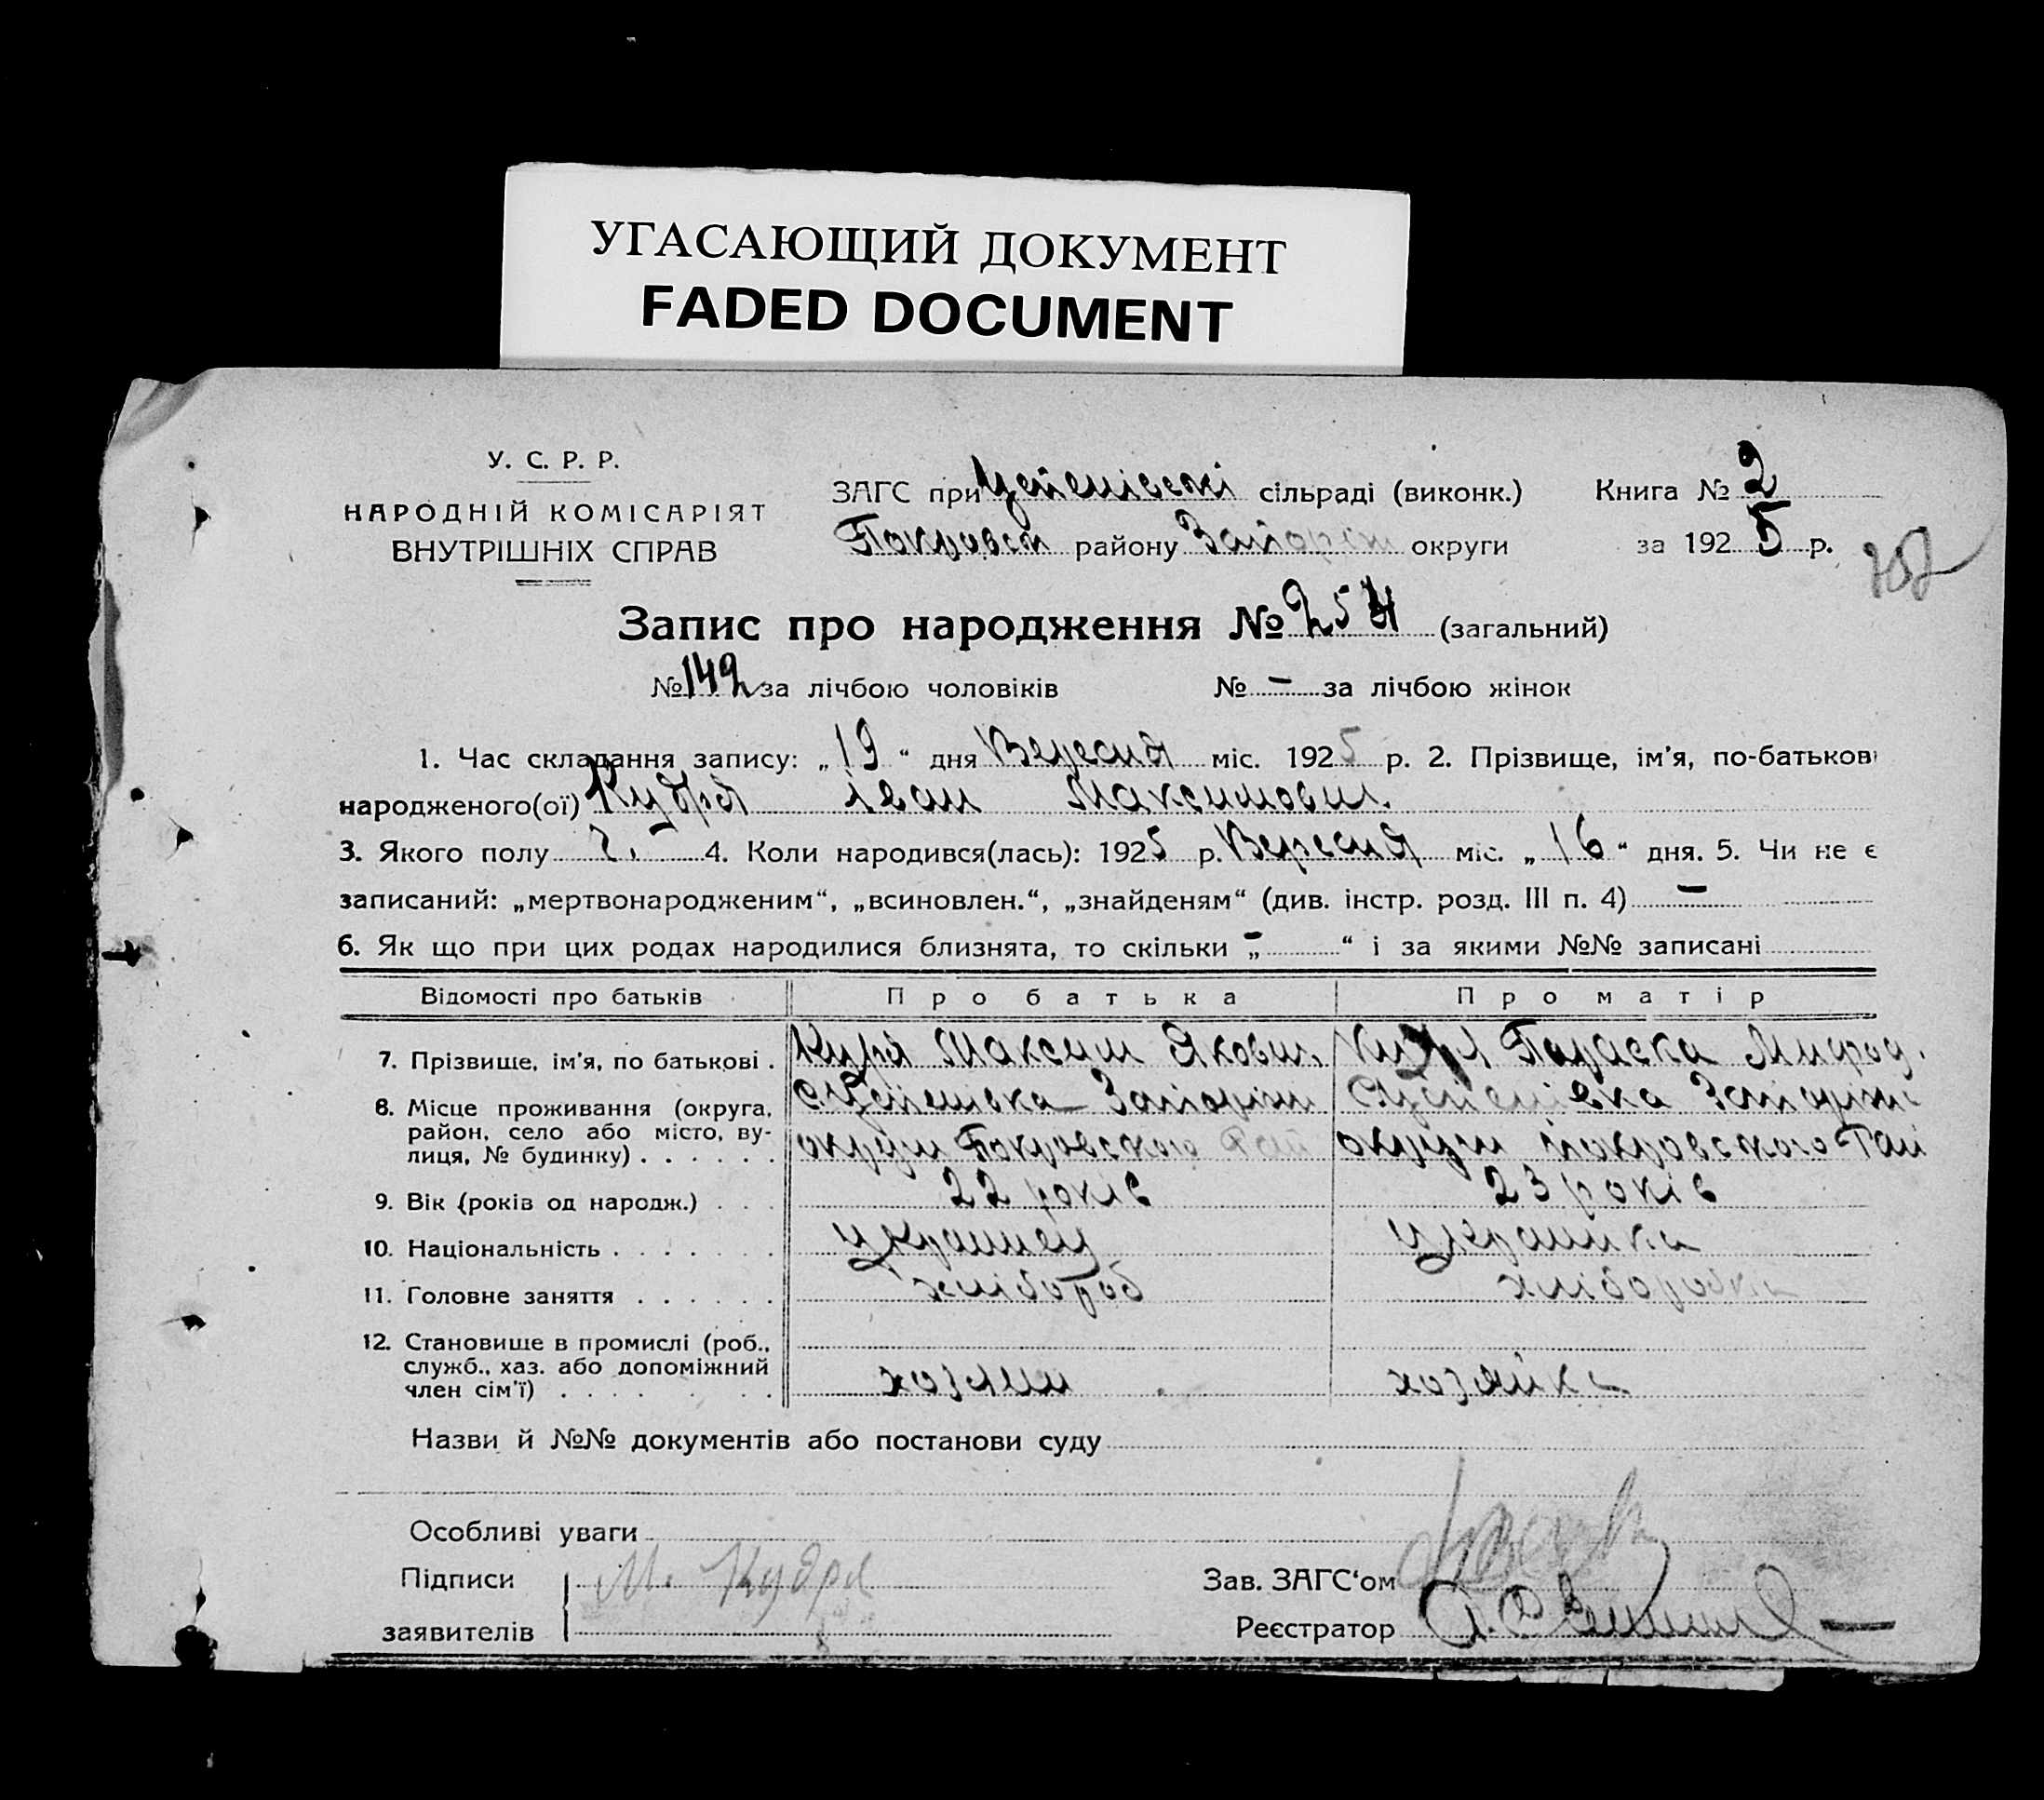 УГАСАЮЩИЙ ДОКУМЕНТ
FADED DOCUMENT
У. С. Р. Р.
НАРОДНІЙ КОМІСАРІЯТ
ВНУТРІШНІХ СПРАВ
ЗАГС при сільраді (виконк.)
Покровськ району Запоріж округи
Книга № 2
за 1925 р.
Запис про народження № 254 (загальний)
№ 149 за лічбою чоловіків № – за лічбою жінок
1. Час складання запису: „19“ дня Вересня міс. 1925 р. 2. Прізвище, ім'я, по-батькові
народженого(ої) Кудря Іван Максимович
3. Якого полу ч. 4. Коли народився(лась): 1925 р. Вересня міс. „16“ дня. 5. Чи не є
записаний: „мертвонародженим“, „всиновлен.“, „знайденям“ (див. інстр. розд. III п. 4) –
6. Як що при цих родах народилися близнята, то скільки „–“ і за якими №№ записані
Відомості про батьків Про батька Про матір
7. Прізвище, ім'я, по батькові . Кудря Максим Якович. Кудря Параска Мифод.
8. Місце проживання (округа,
район, село або місто, ву-
лиця, № будинку) . . . . . . округи Покровського Рай округи Покровського Рай
9. Вік (років од народж.) . . . 22 років 23 років
10. Національність . . . . . . . украинец украинка
11. Головне заняття . . . . . . хлібороб хліборобка
12. Становище в промислі (роб.,
служб., хаз. або допоміжний
член сім'ї) . . . . . . . . хозяин хозяйка
Назви й №№ документів або постанови суду
Особливі уваги
Підписи М. Кудря
заявителів
Зав. ЗАГС'ом
Реєстратор